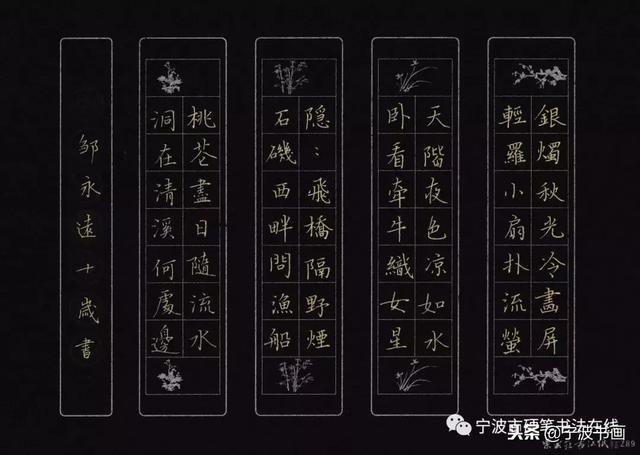 銀燭秋光冷畫屏
輕羅小扇扑流螢
天階夜色凉如水
卧看牽牛織女星
隱:飛橋隔野煙
石磯西畔問漁船
桃花盡日隨流水
洞在清溪何處邊
邹永遠十歲書
宁波市硬笔书法在线
头条@宁波书画
289